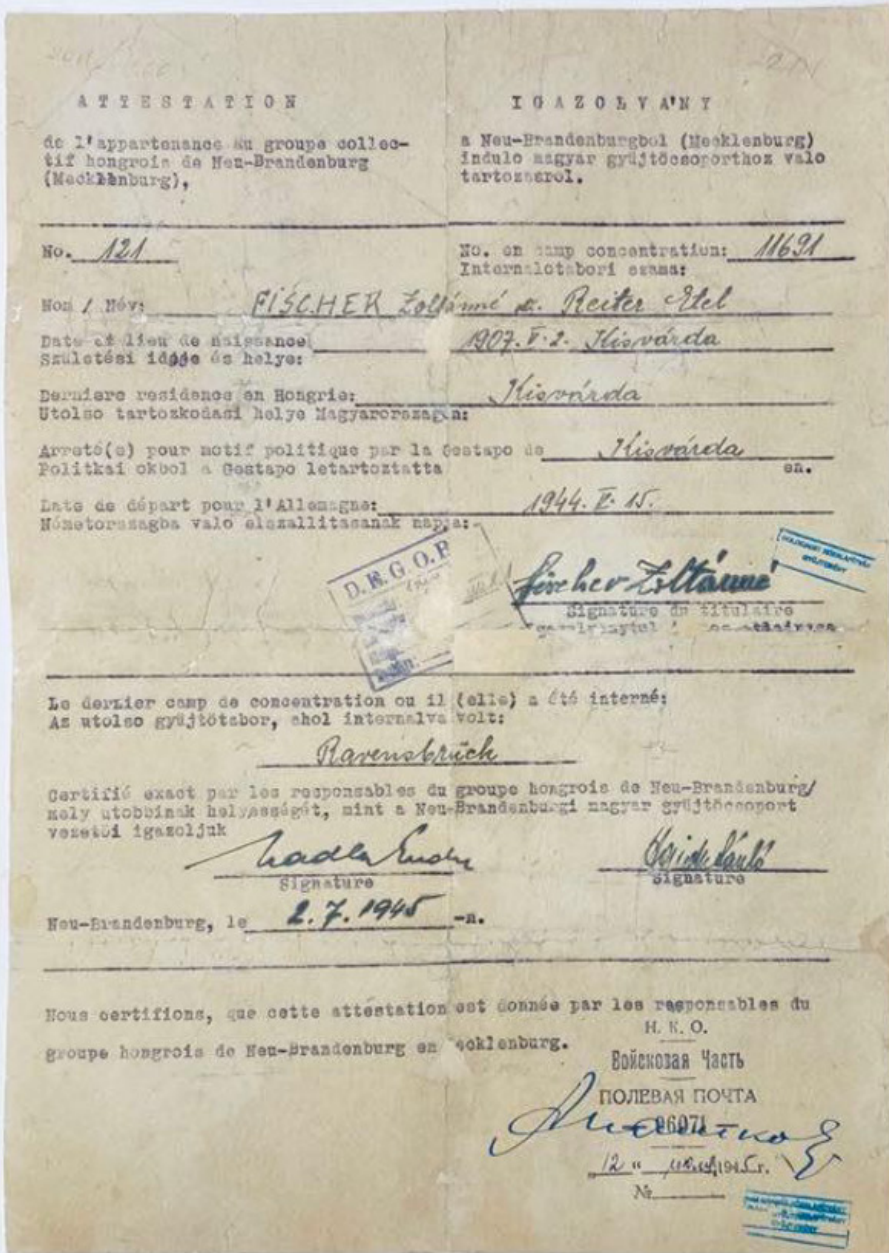 ATTESTATION
de l'appartenance au groupe collec-
tif hongrois de Neu-Brandenburg
(Mecklenburg),
IGAZOLVÁNY
a Neu-Brandenburgbol (Mecklenburg)
indulo magyar gyüjtöcsoporthoz valo
tartozasrol.
No. 121
No. en camp concentration: 11691
Internalotabori szama:
Nom / Név: FISCHER Zoltánné Reiter Etel
Date et lieu de naissance 1907. V. 2. Kisvárda
Születési ideje és helye:
Derniere residence en Hongrie: Kisvárda
Utolso tartozkodasi helye Magyarorszagan:
Arreté(e) pour motif politique par la Gestapo de Kisvárda
Politkai okbol a Gestapo letartoztatta en.
Date de départ pour l'Allemagne: 1944. 15.
Németorszagba valo elszallitasanak napja:
D.E.G.O.B
Fischer Zoltánné
Signature du titulaire
Le dernier camp de concentration ou il (elle) a été interné:
Az utolso gyüjtötabor, ahol internalva volt:
Ravensbrück
Certifié exact par les responsables du groupe hongrois de Neu-Brandenburg/
mely utobbinak helyességét, mint a Neu-Brandenburgi magyar gyüjtöcsoport
vezetöi igazoljuk
Signature
Signature
Neu-Brandenburg, le 2.7.1945 -n.
Nous certifions, que cette attestation est donnée par les responsables du
groupe hongrois de Neu-Brandenburg en ecklenburg.
Н. К. О.
Войсковая Часть
ПОЛЕВАЯ ПОЧТА
96071
"12" 1945 г.
№